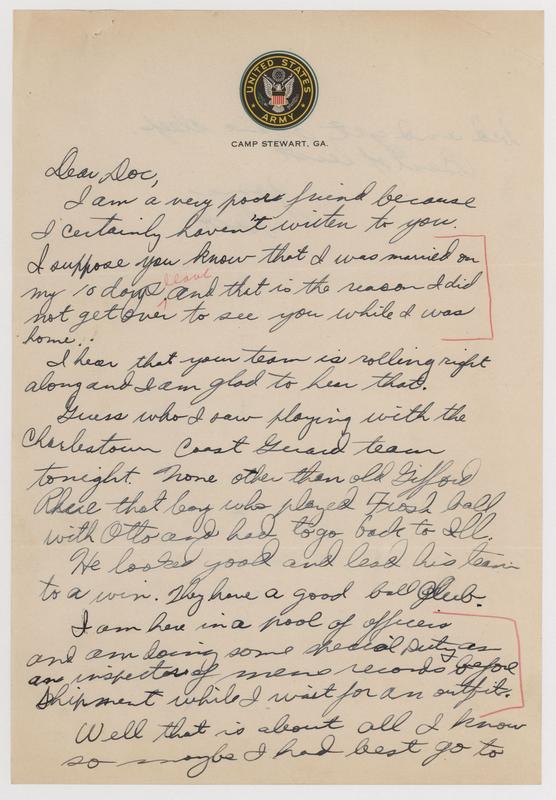 UNITED STATES ARMY
CAMP STEWART, GA.
Dear Doc,
I am a very poor friend because
I certainly haven't written to you.
I suppose you know that I was married on
leave
my 10 days, and that is the reason I did
not get over to see you while I was
home..
I hear that your team is rolling right
along and I am glad to hear that.
Guess who I saw playing with the
Charlestown Coast Guard team
tonight. None other than old Gifford
that boy who played Frosh ball
with Otto and had to go back to Ill.
He looked good and lead his team
to a win. They have a good ball Club.
I am here in a pool of officers
and am doing some special Duty as
an inspector of mens records before
shipment while I wait for an outfit.
Well that is about all I know
so maybe I had best go to